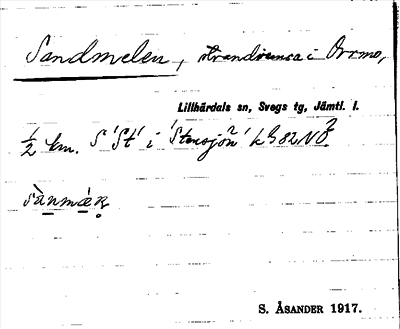 Sandmelen, strandremsa i Orrmo,
Lillhärdals sn, Svegs tg, Jämtl. l.
½ km. S 'St' i 'Stensjön' L G 82 NÖ.
S. ÅSANDER 1917.